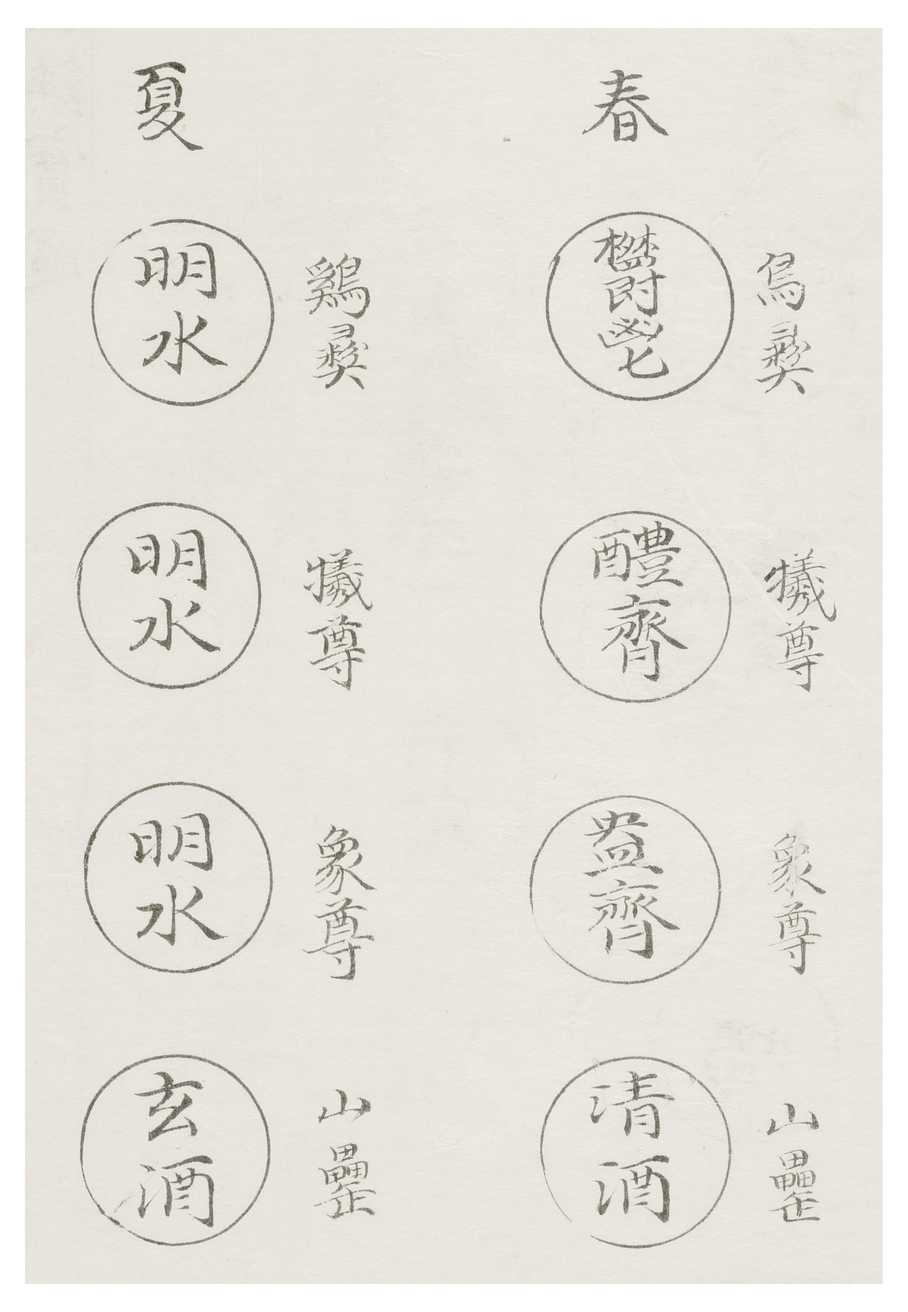 春
鳥彝
鬱鬯
犧尊
醴齊
象尊
盎齊
山罍
清酒
夏
鷄彝
明水
犧尊
明水
象尊
明水
山罍
玄酒